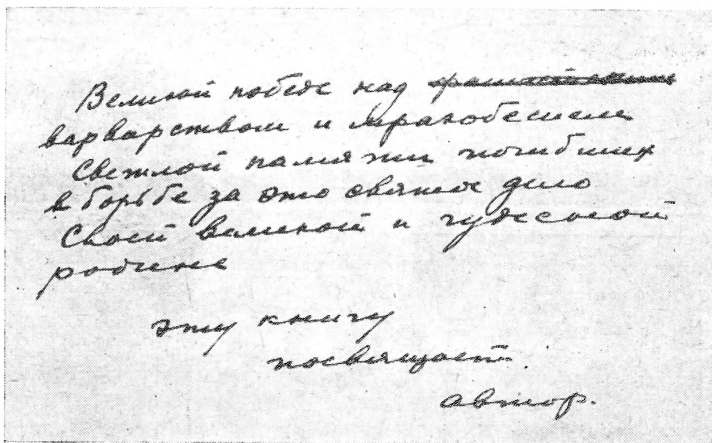 Великой победе над
варварством и мракобесием
Светлой памяти погибших
в борьбе за это святое дело
Своей великой и чудесной
родине
эту книгу
посвящает
автор.